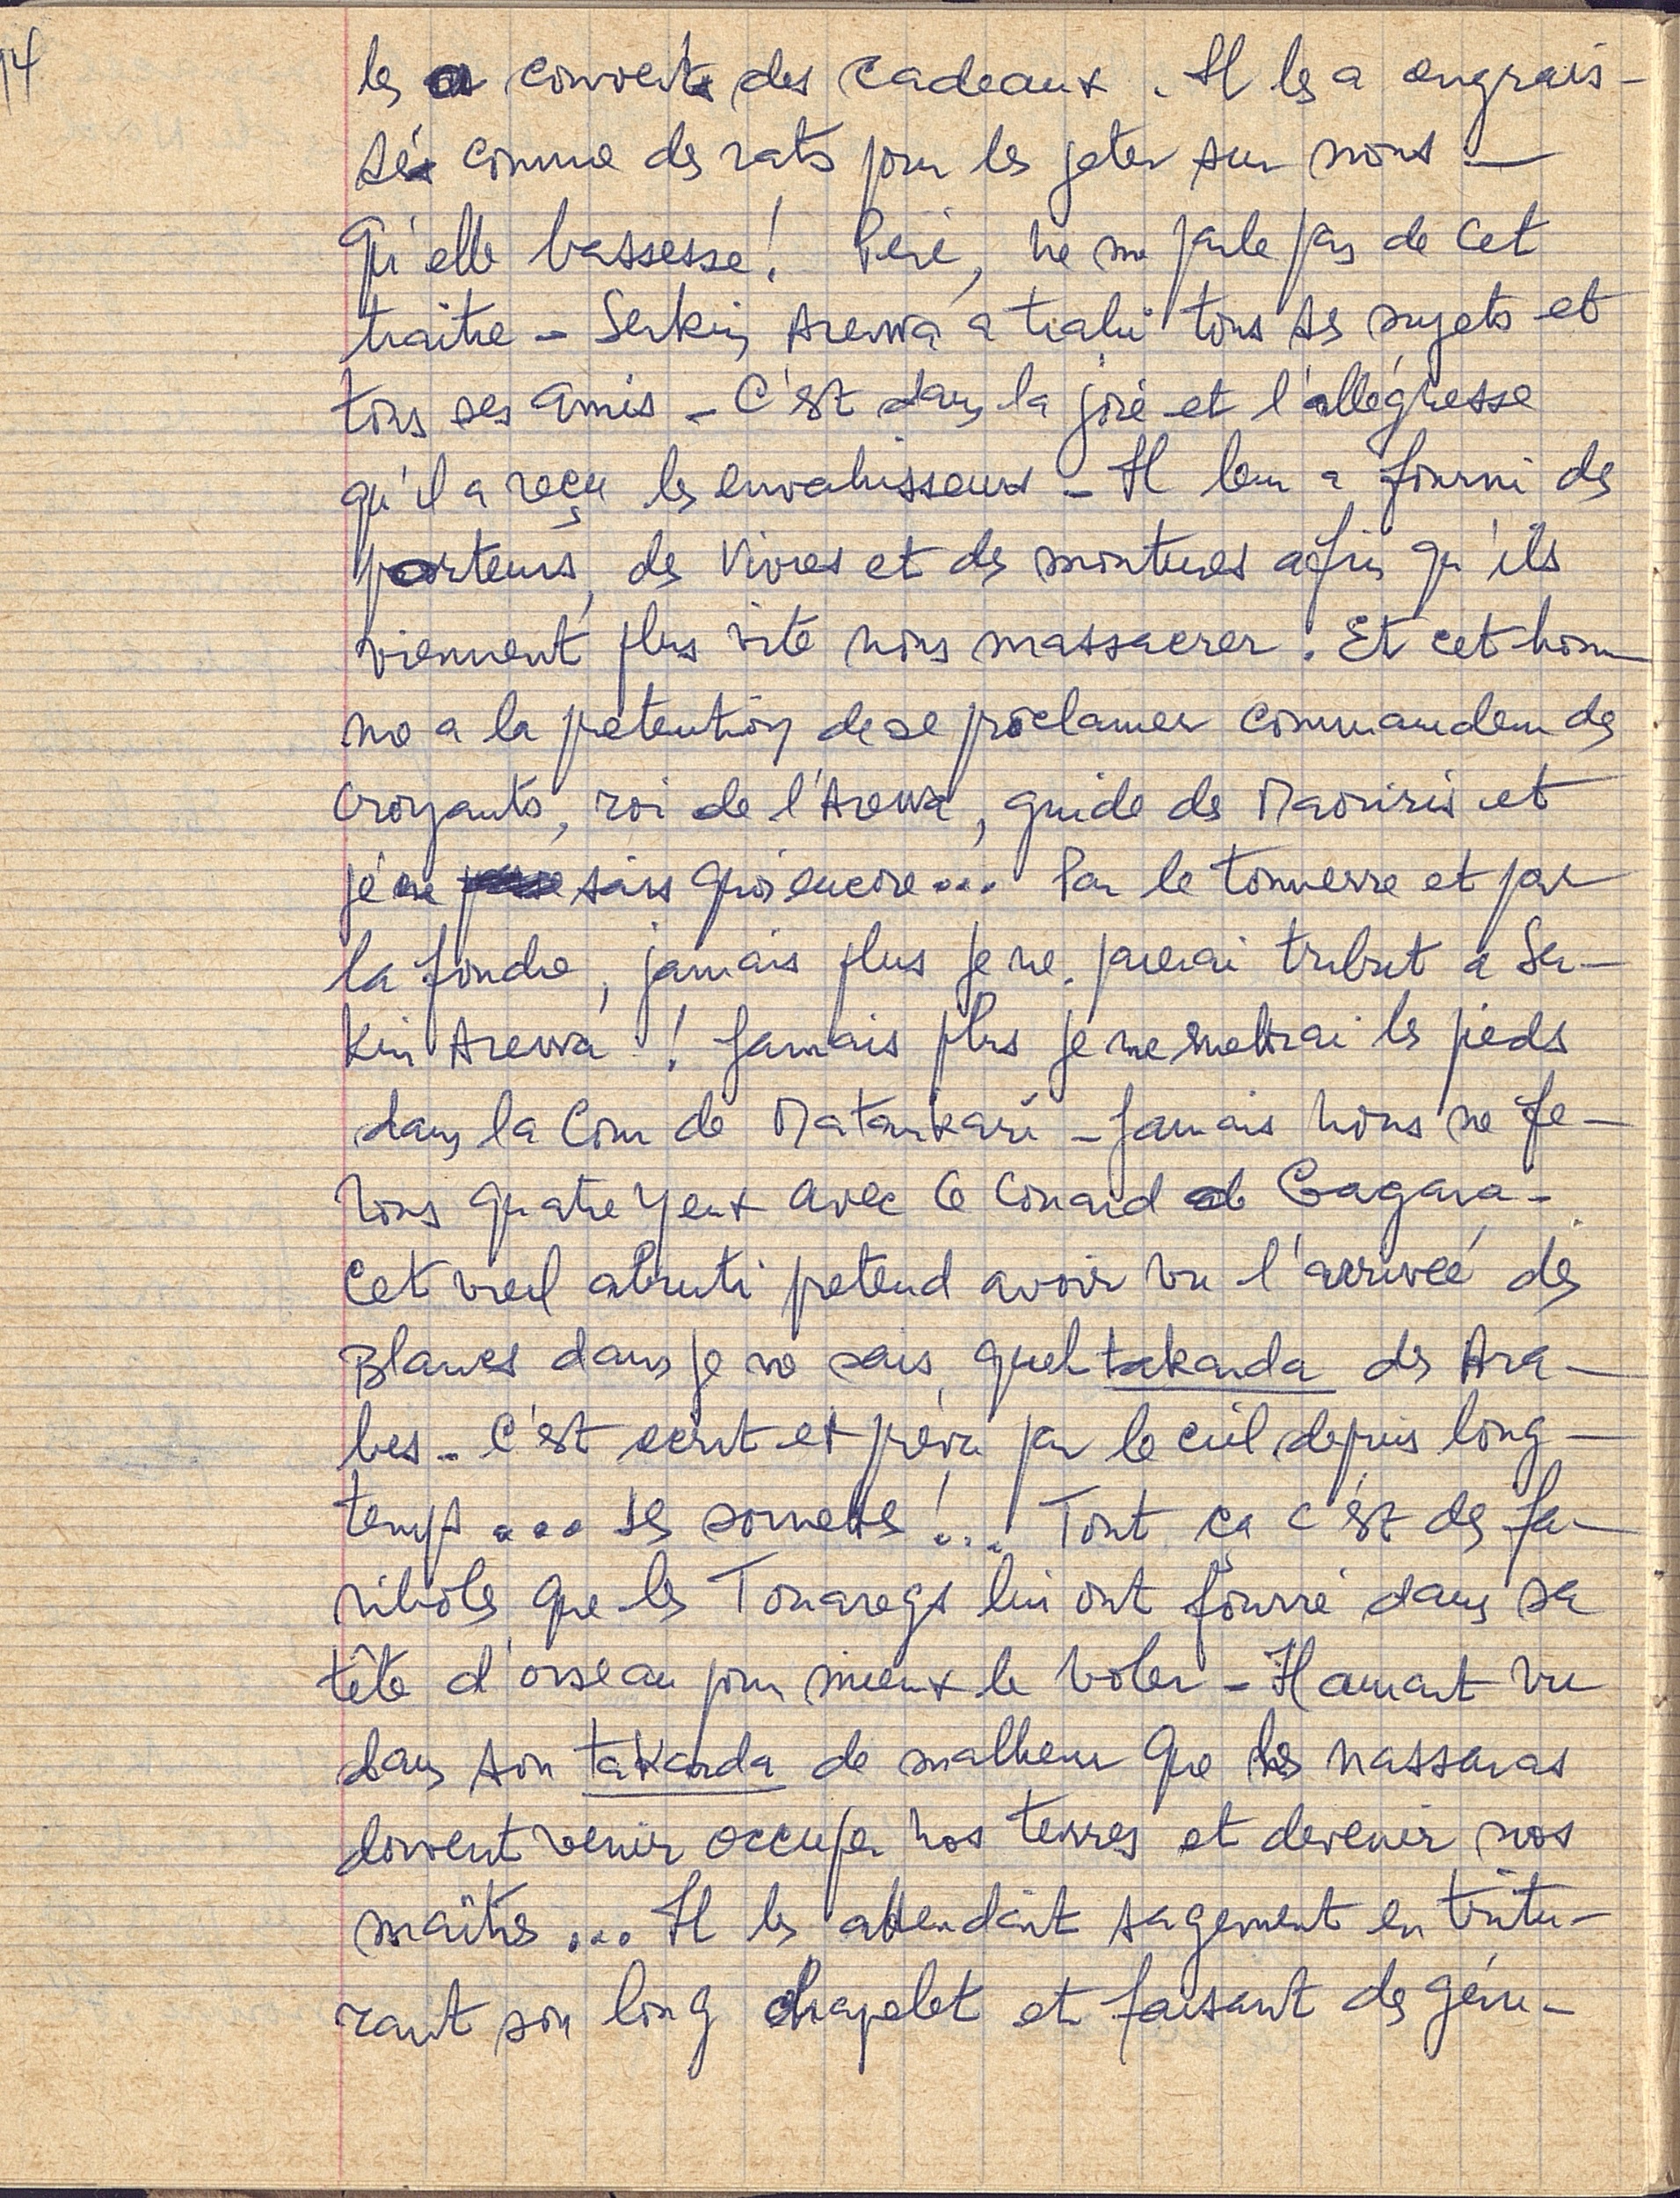 14
les a couverts des cadeaux. Il les a engrais-
sés comme des rats pour les jeter sur nous –
Qu'elle bassesse! Père, ne me parle pas de cet
traître – Serkin Arewa a trahi tous ses sujets et
tous ses amis – C'est dans la joie et l'allégresse
qu'il a reçu les envahisseurs – Il leur a fourni des
porteurs, des vivres et des montures afin qu'ils
viennent plus vite nous massacrer. Et cet hom
me a la pretention de se proclamer commandeur des
croyants, roi de l'Arewa, guide des Maouris et
je ne sais quoi encore... Par le tonnerre et par
la foudre, jamais plus je ne paierai tribut à Ser-
kin Arewa! Jamais plus je ne mettrai les pieds
dans la Cour de Matankari – Jamais nous ne fe-
rons quatre yeux avec ce Couard de Gagara –
Cet vieil abruti pretend avoir vu l'arrivée des
Blancs dans je ne sais quel takarda des Ara-
bes – C'est ecrit et prévu par le ciel depuis long-
temps... ses sornettes!... Tout ça c'est des fa-
riboles que les Touaregs lui ont fourré dans sa
tête d'oiseau pour mieux le voler – Il aurait vu
dans son takarda de malheur que les nassaras
doivent venir occuper nos terres et devenir nos
maîtres... Il les attendait sagement en tritu-
rant son long chapelet et faisant des génu-